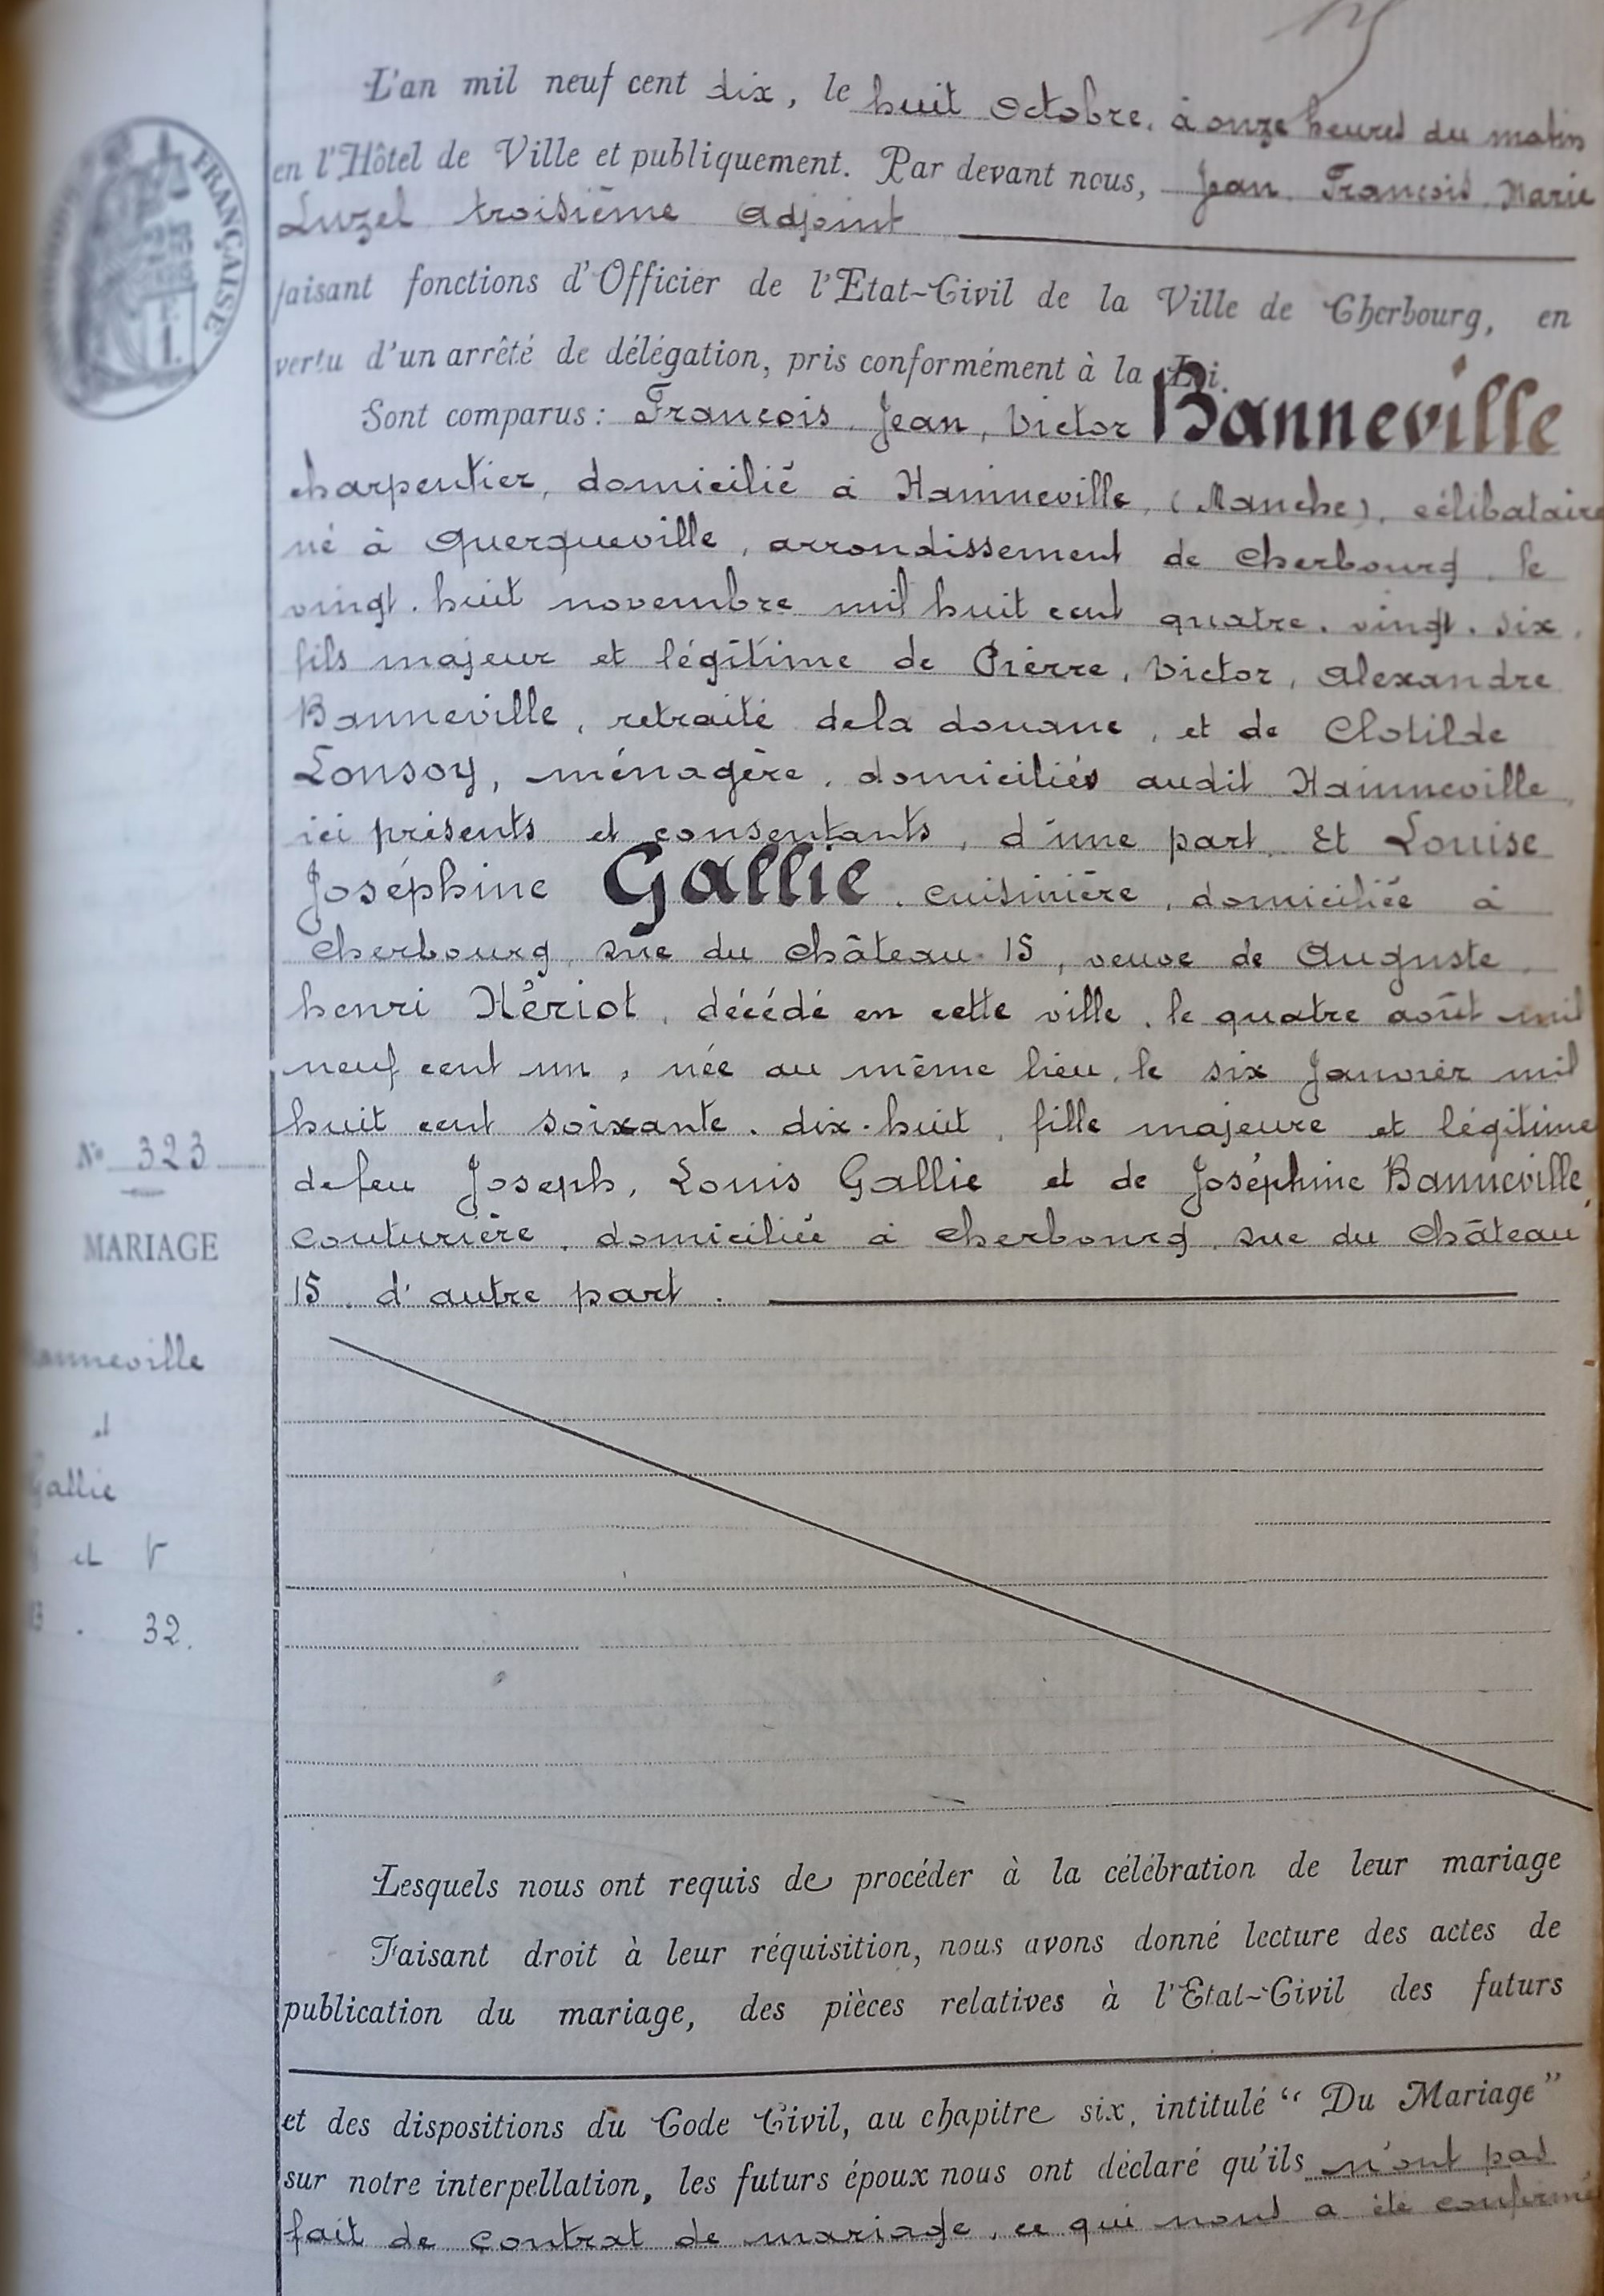 L'an mil neuf cent dix, le huit Octobre, à onze heures du matin
en l'Hôtel de Ville et publiquement. Par devant nous, Jean François Marie
Luzel troisième adjoint
FRANÇAISE
faisant fonctions d'Officier de l'Etat-Civil de la Ville de Cherbourg, en
vertu d'un arrêté de délégation, pris conformément à la Loi.
Sont comparus : François, Jean, Victor Banneville
charpentier, domicilié à Hainneville, (Manche), célibataire
né à Querqueville, arrondissement de Cherbourg, le
vingt-huit novembre mil huit cent quatre-vingt-six,
fils majeur et légitime de Pierre, Victor, Alexandre
Banneville, retraité de la douane, et de Clotilde
Lonsoy, ménagère, domiciliés audit Hainneville,
ici présents et consentants, d'une part, Et Louise
Joséphine Gallie, cuisinière, domiciliée à
Cherbourg, rue du Château 15, veuve de Auguste,
henri Hériot, décédé en cette ville, le quatre août mil
neuf cent un, née au même lieu, le six Janvier mil
huit cent soixante-dix-huit, fille majeure et légitime
de feu Joseph, Louis Gallie et de Joséphine Banneville,
couturière, domiciliée à Cherbourg, rue du Château
15, d'autre part.
N° 323
MARIAGE
Banneville
et
Gallie
et V
32.
Lesquels nous ont requis de procéder à la célébration de leur mariage
Faisant droit à leur réquisition, nous avons donné lecture des actes de
publication du mariage, des pièces relatives à l'Etat-Civil des futurs
et des dispositions du Code Civil, au chapitre six, intitulé “ Du Mariage ”
sur notre interpellation, les futurs époux nous ont déclaré qu'ils n'ont pas
fait de contrat de mariage, ce qui nous a été confirmé